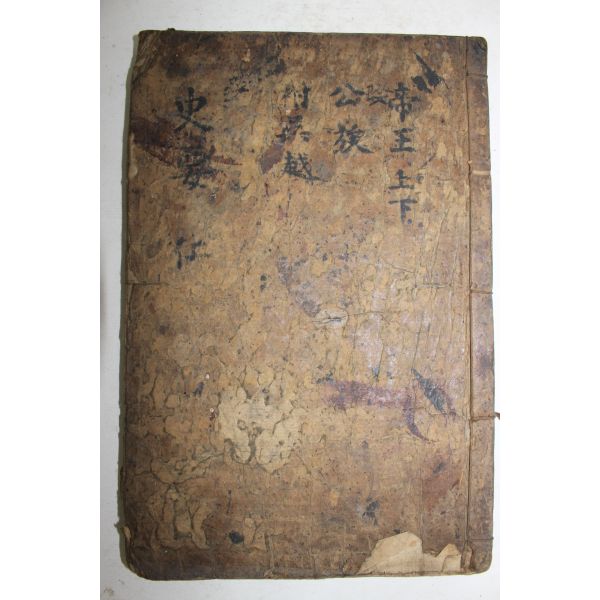 帝王 上下
公族
附吳越
史要 仁